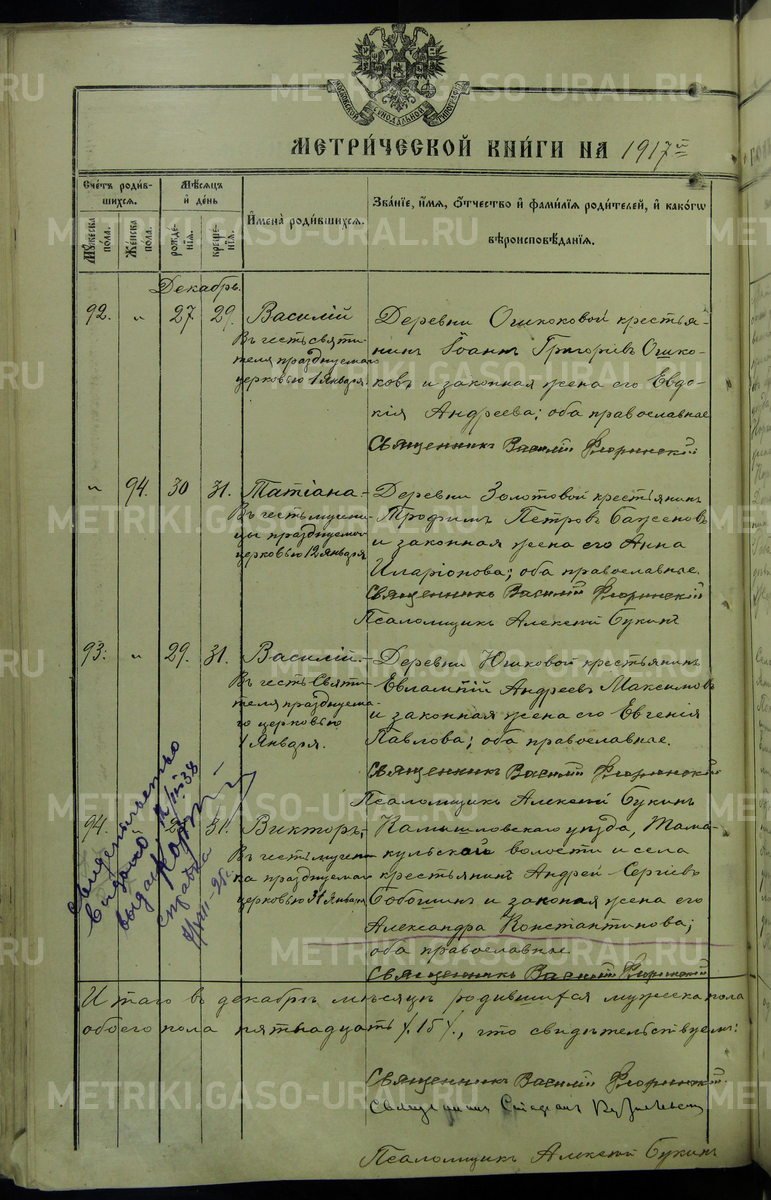 МЕТРИ́ЧЕСКОЙ КНИ́ГИ НА 1917й
Сче́тъ роди́в-
шихся.
Мꙋ́жеска
по́ла.
Же́нска
по́ла.
Мѣ́сяцъ
и҆ де́нь
рожде-
нїя.
креще-
нїя.
И҆мена̀ роди́вшихся.
Зва́нїе, и҆́мя, ѻ҆́тчество и҆ фами́лїя роди́телей, и҆ како́гѡ
вѣроисповѣ́данїя.
Декабрь.
92. " 27 29. Василій
Въ честь святи-
теля празднуемаго
церковью 1 Января.
Деревни Ошкоковой крестья-
нинъ Іоаннъ Григорієвъ Ошко-
ковъ и законная жена его Евдо-
кія Андреева; оба православные
Священникъ Василій Флоринскій
" 94. 30 31. Татіана
Въ честь мучени-
цы празднуемой
церковью 12 Января
Деревни Золотовой крестьянинъ
Трофимъ Петровъ Баженовъ
и законная жена его Анна
Иларіонова; оба православные.
Священникъ Василій Флоринскій
Псаломщикъ Алексій Букинъ
93. " 29. 31. Василій.
Въ честь Святи-
теля празднуема-
го церковью
1 Января.
Деревни Юшковой крестьянинъ
Евлампій Андреевъ Максимовъ
и законная жена его Евгенія
Павлова; оба православные.
Священникъ Василій Флоринскій
Псаломщикъ Алексій Букинъ
94. 31. Викторъ,
Въ честь мучени-
ка празднуемаго
церковью 31 Января
Камышловскаго уѣзда, Тама-
кульской волости и села
крестьянинъ Андрей Сергіевъ
и законая жена его
Александра Константинова;
оба православные.
Священникъ Василій Флоринскій
свидетельство
выдано
справка
Итого въ декабрѣ мѣсяцѣ родившихся мужеска пола
обоего пола пятнадцать /.15/., что свидѣтельствуемъ:
Священникъ Василій Флоринскій
Священникъ Стефанъ
Псаломщикъ Алексій Букинъ
METRIKI.GASO-URAL.RU